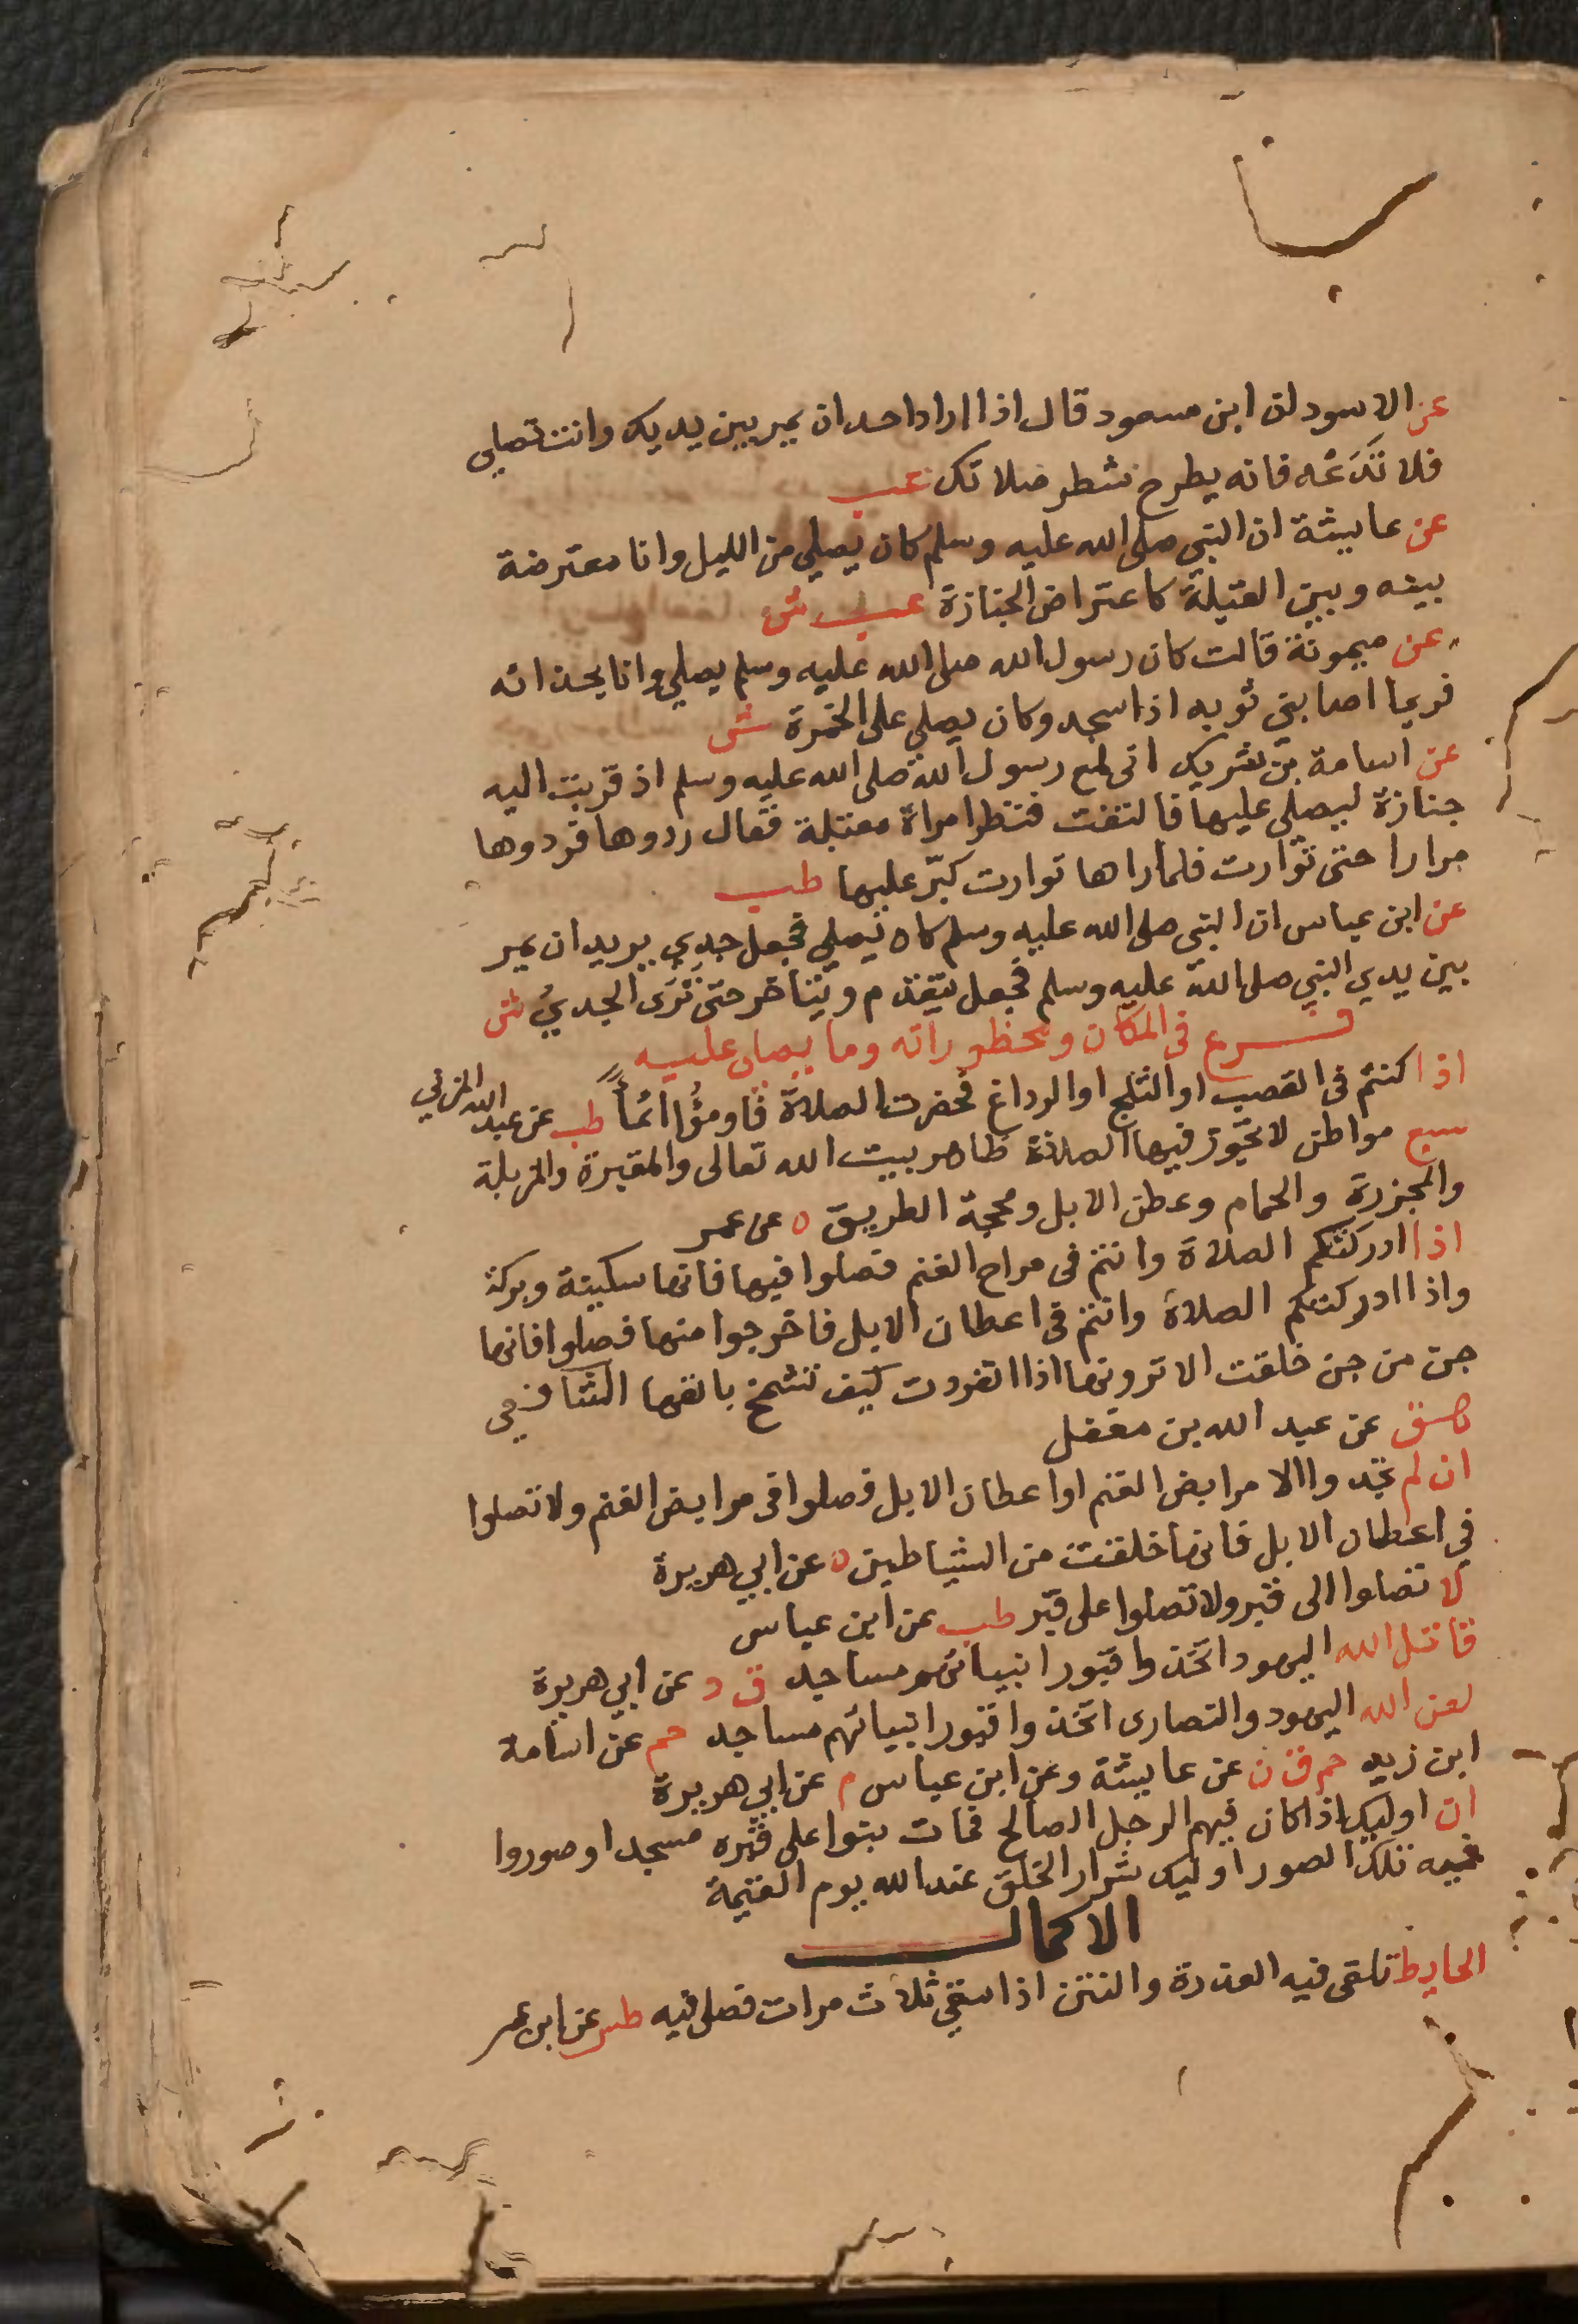 عن الاسود ان ابن مسعود قال اذا اراد احد ان يمر بين يديك وانت تصلي
فلا تدعه فانه يطرح شطر صلاتك عب
عن عايشة ان النبي صلى الله عليه وسلم كان يصلي من الليل وانا معترضة
بينه وبين القبلة كاعتراض الجنازة عب ش
عن ميمونة قالت كان رسول الله صلى الله عليه وسلم يصلي وانا بحذائه
فربما اصابني ثوبه اذا سجد وكان يصلي على الخمرة ش
عن اسامة بن شريك اني لمع رسول الله صلى الله عليه وسلم اذ قربت اليه
جنازة ليصلي عليها فالتفت فنظر امراة مقبلة فقال ردوها فردوها
مرارا حتى توارت فلما راها توارت كبّر عليها طب
عن ابن عباس ان النبي صلى الله عليه وسلم كان يصلي فجعل جدي يريد ان يمر
بين يدي النبي صلى الله عليه وسلم فجعل يتقدم ويتاخر حتى نزى الجديُ ش
فرع فى المكان ومحظوراته وما يصلى عليه
اذا كنتم فى القصب او الثلج او الرداغ فحضرت الصلاة فاومؤا ائمأً طب عن عبد الله المزني
سبع مواطن لا تجوز فيها الصلاة ظاهر بيت الله تعالى والمقبرة والمزبلة
والمجزرة والحمام وعطن الابل ومحجة الطريق ه عن عمر
اذا ادركتكم الصلاة وانتم فى مراح الغنم فصلوا فيها فانها سكينة وبركة
واذا ادركتكم الصلاة وانتم فى اعطان الابل فاخرجوا منها فصلوا فانها
جن من جن خلقت الا ترونها اذا نفرت كيف تشمخ بانفها الشافعي
هق عن عبد الله بن مغفل
ان لم تجدوا الا مرابض الغنم او اعطان الابل فصلوا فى مرابض الغنم ولا تصلوا
في اعطان الابل فانها خلقت من الشياطين ه عن ابي هريرة
لا تصلوا الى قبر ولا تصلوا على قبر طب عن ابن عباس
قاتل الله اليهود اتخذوا قبور انبيائهم مساجد ق د عن ابي هريرة
لعن الله اليهود والنصارى اتخذوا قبور انبيائهم مساجد حم عن اسامة
ابن زيد حم ق ن عن عايشة وعن ابن عباس م عن ابي هريرة
ان اوليك اذا كان فيهم الرجل الصالح فمات بنوا على قبره مسجدا وصوروا
فيه تلك الصور اوليك شرار الخلق عند الله يوم القيمة
الاكمال
الحايط تلقى فيه العذرة والنتن اذا سقي ثلاث مرات فصلى فيه طس عن ابن عمر